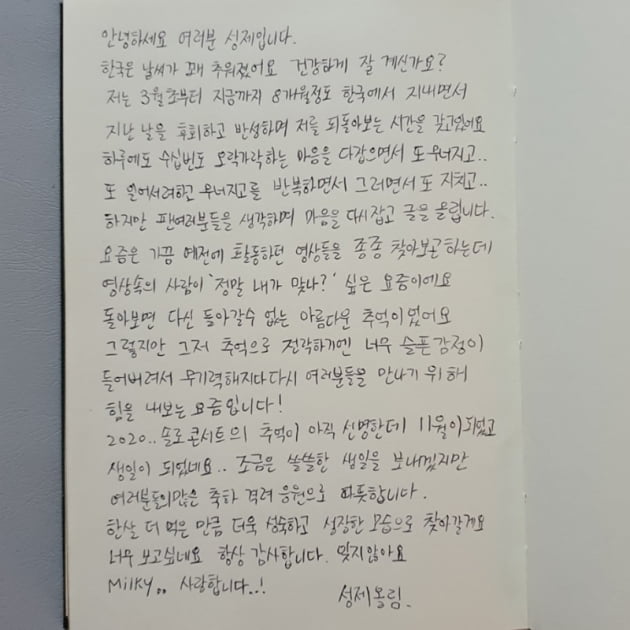 안녕하세요 여러분 성제입니다.
한국은 날씨가 꽤 추워졌어요 건강하게 잘 계신가요?
저는 3월초부터 지금까지 8개월정도 한국에서 지내면서
지난 날을 후회하고 반성하며 저를 되돌아보는 시간을 갖고있네요
하루에도 수십번도 오락가락하는 마음을 다잡으면서 또 무너지고..
또 일어서려하고 무너지고를 반복하면서 그러면서 또 지치고..
하지만 팬여러분들을 생각하며 마음을 다시잡고 글을 올립니다.
요즘은 가끔 예전에 활동하던 영상들을 종종 찾아보곤하는데
영상속의 사람이 '정말 내가 맞나?' 싶은 요즘이에요
돌아보면 다신 돌아갈수 없는 아름다운 추억이었어요
그렇지만 그저 추억으로 전락하기엔 너무 슬픈감정이
들어버려서 무기력해지다 다시 여러분들을 만나기 위해
힘을 내보는 요즘입니다!
2020.. 솔로콘서트의 추억이 아직 선명한데 11월이되었고
생일이 되었네요.. 조금은 쓸쓸한 생일을 보내겠지만
여러분들의많은 축하 격려 응원으로 따뜻합니다.
한살 더 먹은 만큼 더욱 성숙하고 성장한 모습으로 찾아갈게요
너무 보고싶네요 항상 감사합니다. 잊지않아요
Milky.. 사랑합니다..!
성제올림.